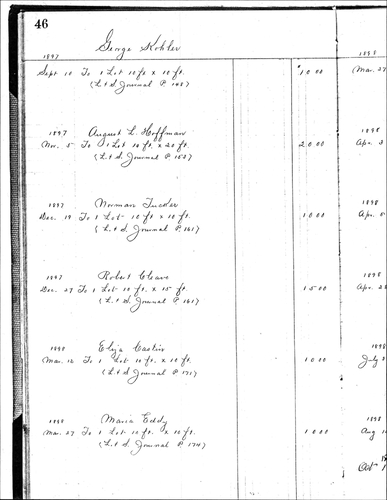 46
1897 George Kohler 1898
Sept 10 To 1 Lot 10 ft x 10 ft. 10 00 Mar. 27
(L & S Journal P. 148)
1897 August L. Hoffman 1898
Nov. 5 To 1 Lot 10 ft. x 20 ft. 20 00 Apr. 3
(L. & S. Journal P. 153)
1897 Norman Tucker 1898
Dec. 19 To 1 Lot 10 ft x 10 ft. 10 00 Apr. 5
(L. & S. Journal P. 161)
1897 Robert Cleave 1898
Dec. 27 To 1 Lot 10 ft. x 15 ft. 15 00 Apr. 28
(L. & S. Journal P. 161)
1898 Eliza 1898
Mar. 16 To 1 Lot 10 ft. x 10 ft. 10 00 July
(L & S Journal P. 172)
1898 Maria Eddy 1898
Mar. 27 To 1 Lot 10 ft. x 10 ft. 10 00 Aug
(L. & S. Journal P. 174)
Oct